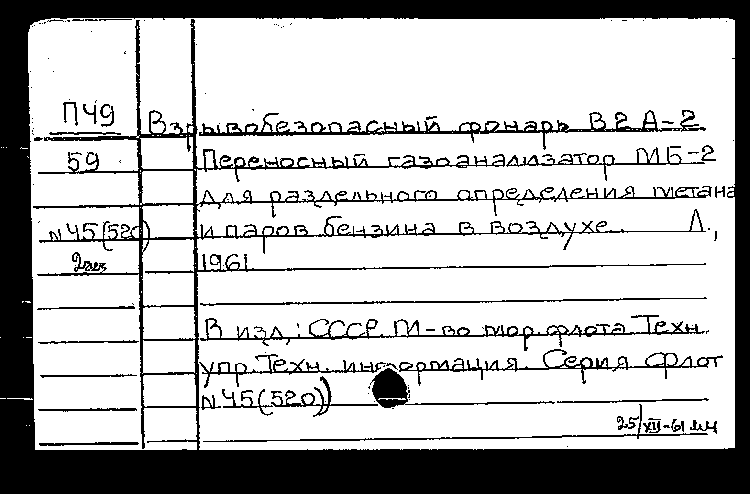 П49 Взрывобезопасный фонарь В2А-2
59 Переносный газоанализатор МБ-2
для раздельного определения метана
N45(520) и паров бензина в воздухе. Л.,
2экз 1961
В изд.: СССР. М-во мор.флота Техн.
упр. Техн. информация. Серия флот
N45(520))
25/XII-61